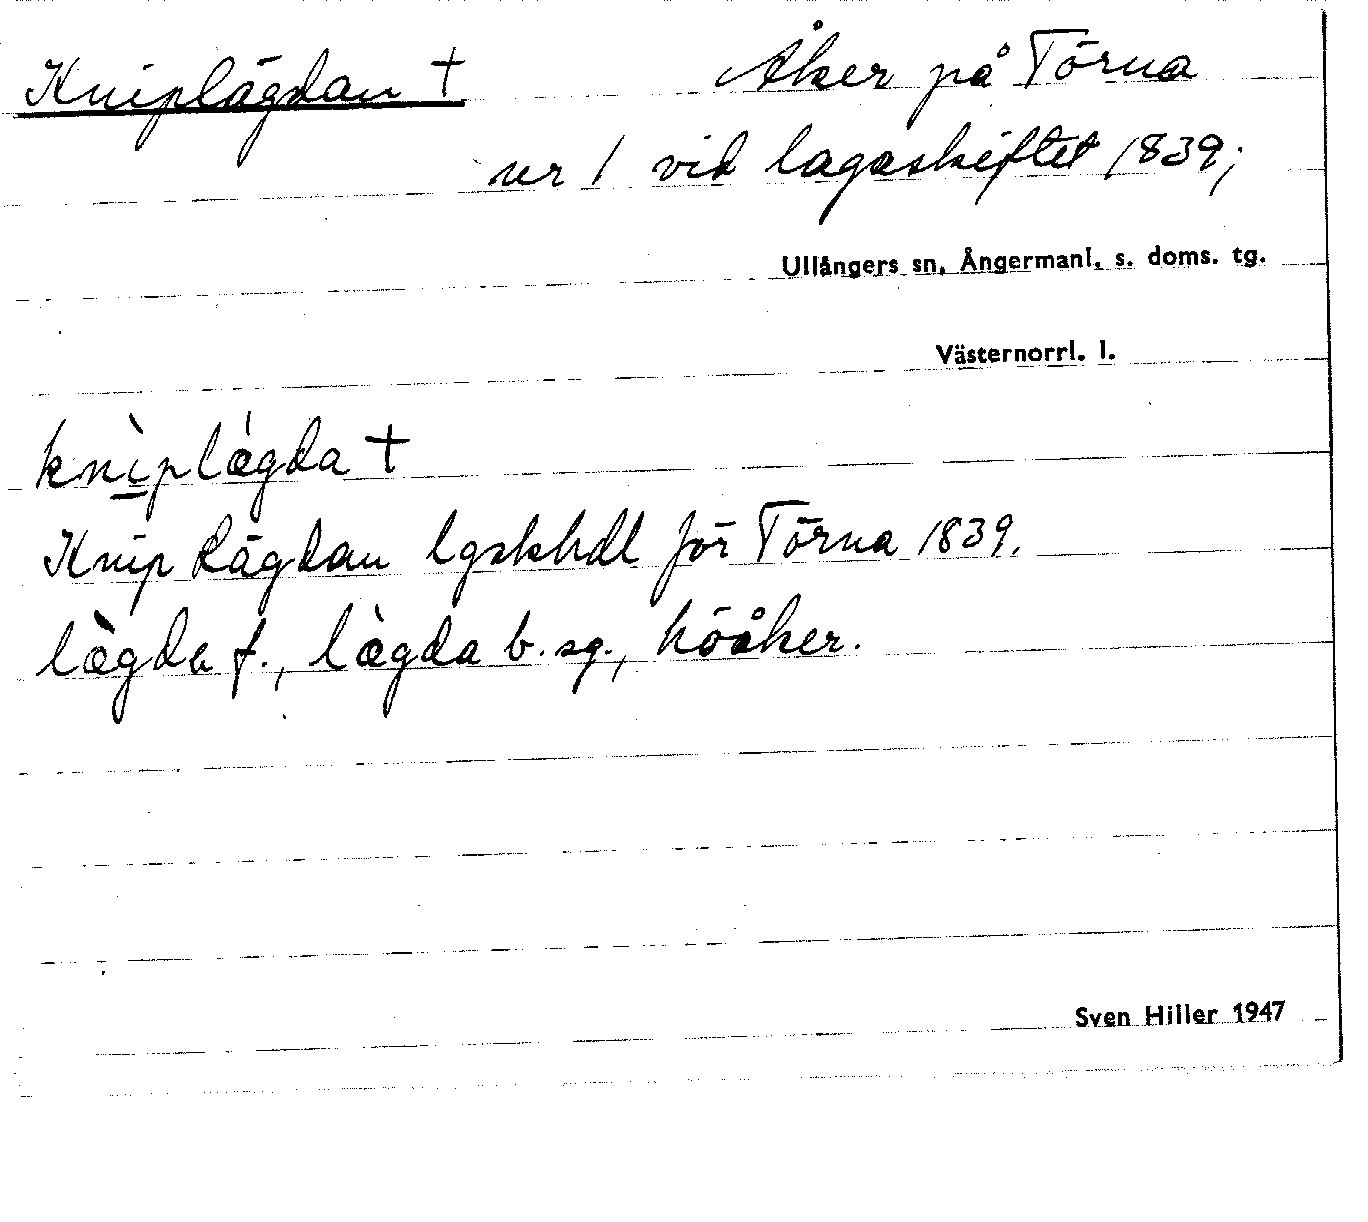 Kniplägdan † Åker på Törna
nr 1 vid lagaskiftet 1839;
Ullångers sn, Ångermanl. s. doms. tg.
Västernorrl. l.
knìplǽgda †
Knip Lägdan lgskhdl för Törna 1839.
lǽ̀gda f., lǽ̀gda b. sg., höåker.
Sven Hiller 1947